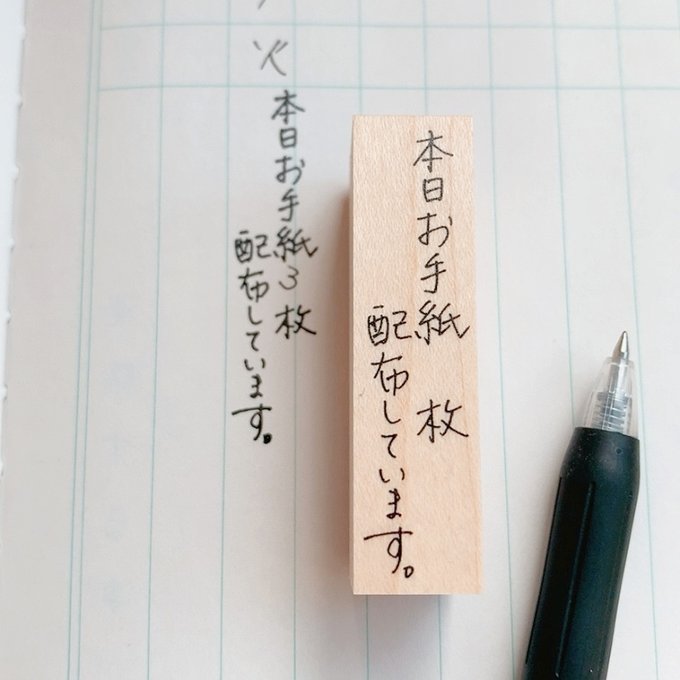 本日お手紙 枚
配布しています。
火
本日お手紙3枚
配布しています。